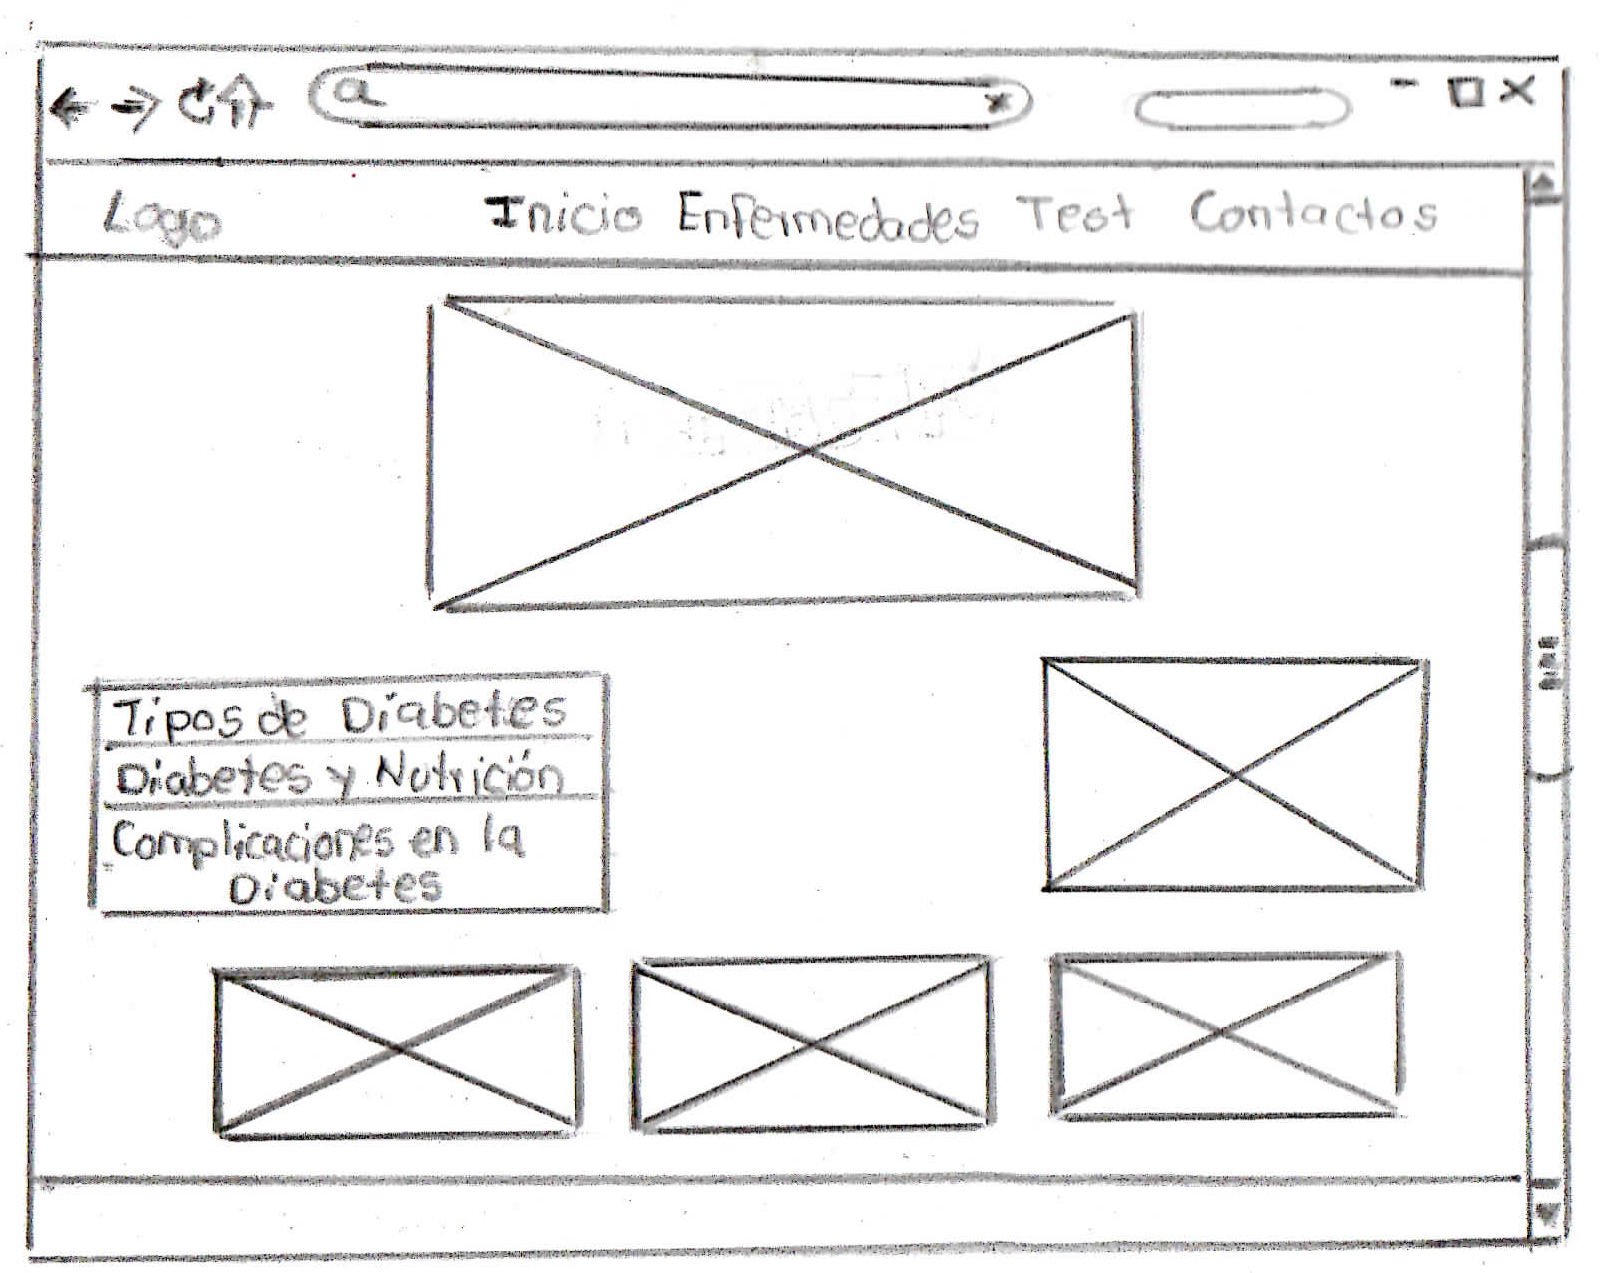 Logo Inicio Enfermedades Test Contactos
Tipos de Diabetes
Diabetes y Nutrición
Complicaciones en la
Diabetes